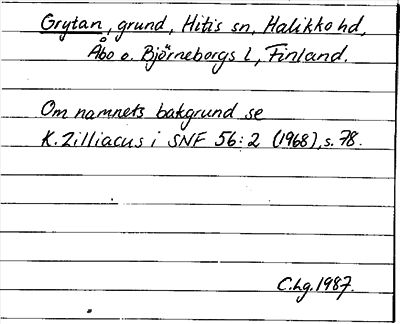 Grytan, grund, Hitis sn, Halikko hd,
Åbo o. Björneborgs l, Finland.
Om namnets bakgrund se
K. Zilliacus i SNF 56:2 (1968), s. 78.
C.Lg. 1987.